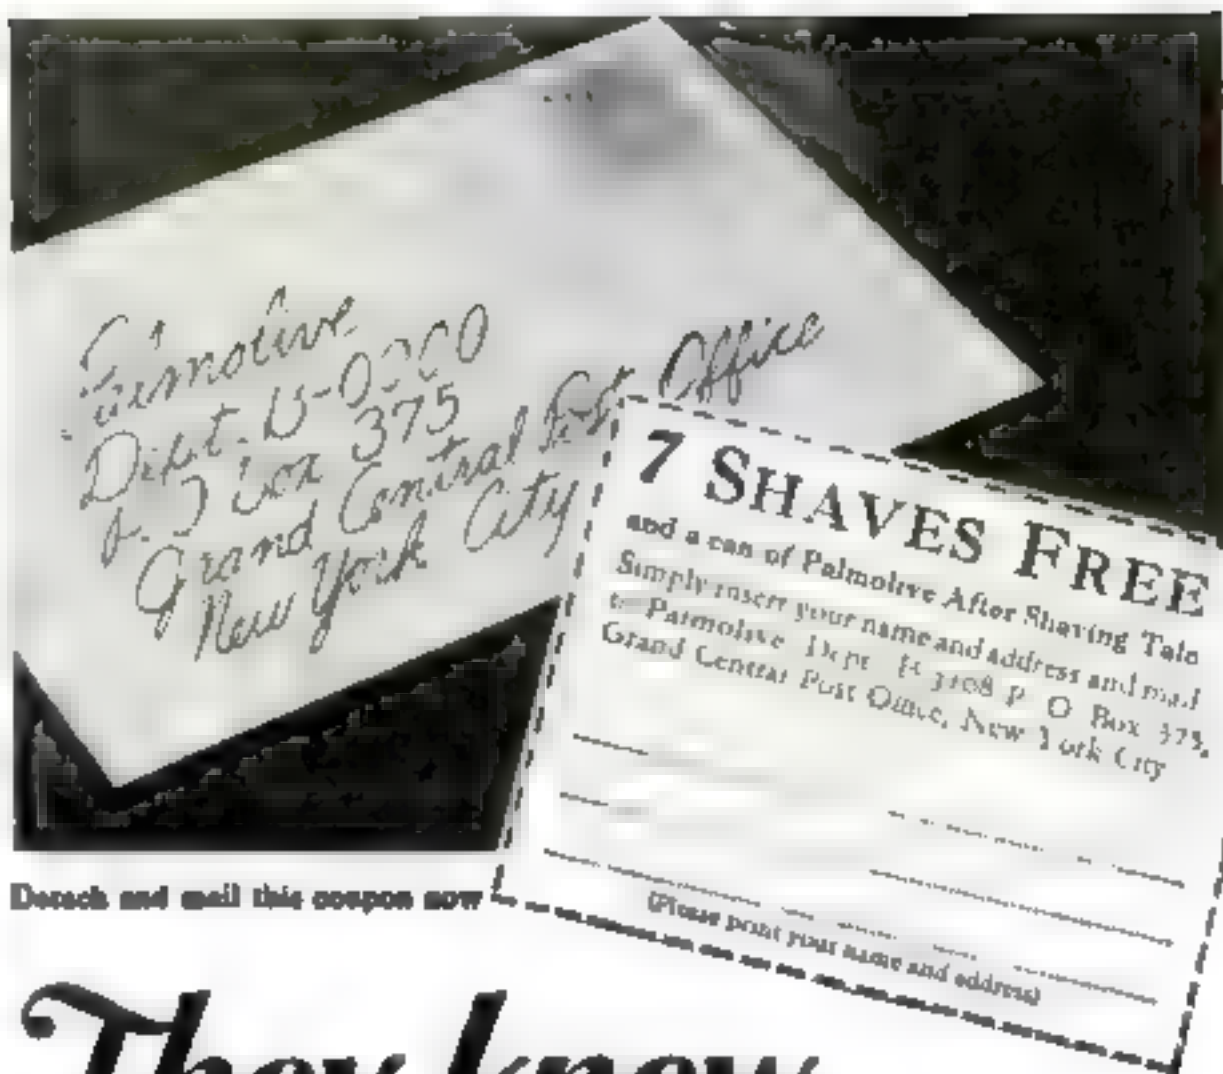 Palmolive
Dept.
Box 375
Grand Central Post Office
New York City
7 SHAVES FREE
and a can of Palmolive After Shaving Talc
Simply insert your name and address and mail
to Palmolive Dept P. O Box 375,
Grand Central Post Office, New York City
(Please print your name and address)
Detach and mail this coupon now
They know